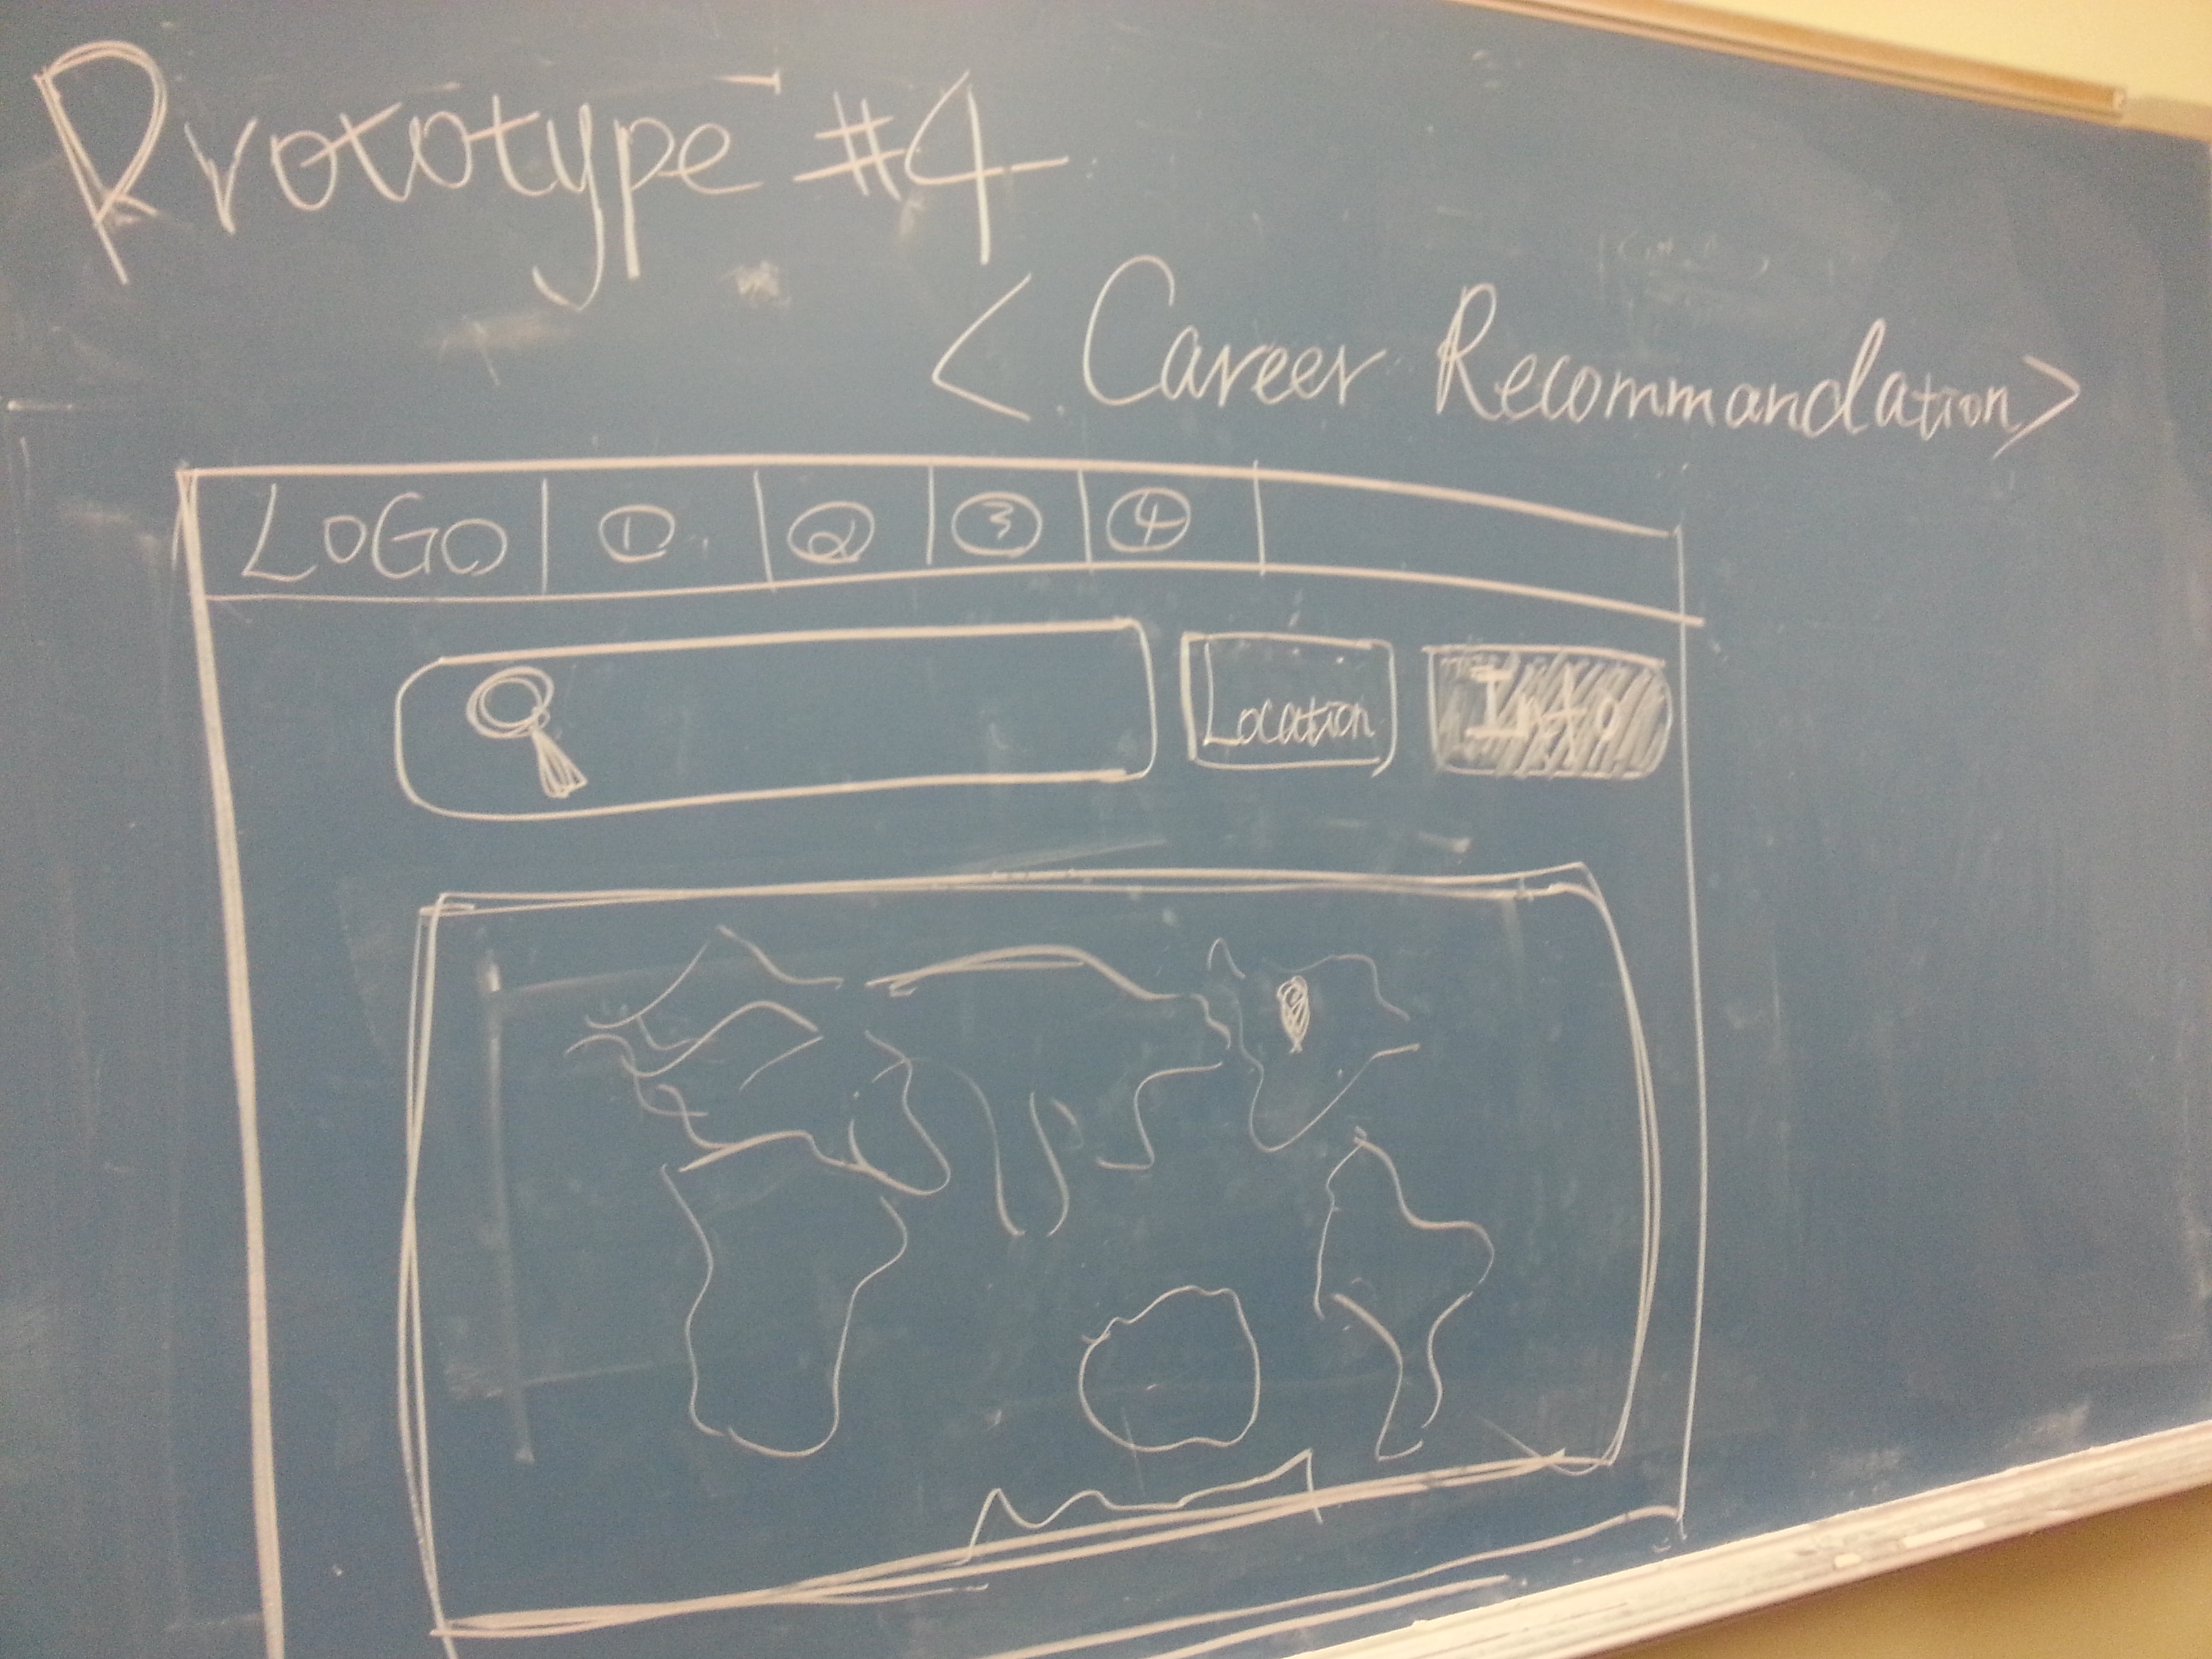 Prototype #4
< Career Recommandation>
LOGO ① ② ③ ④
Location Info